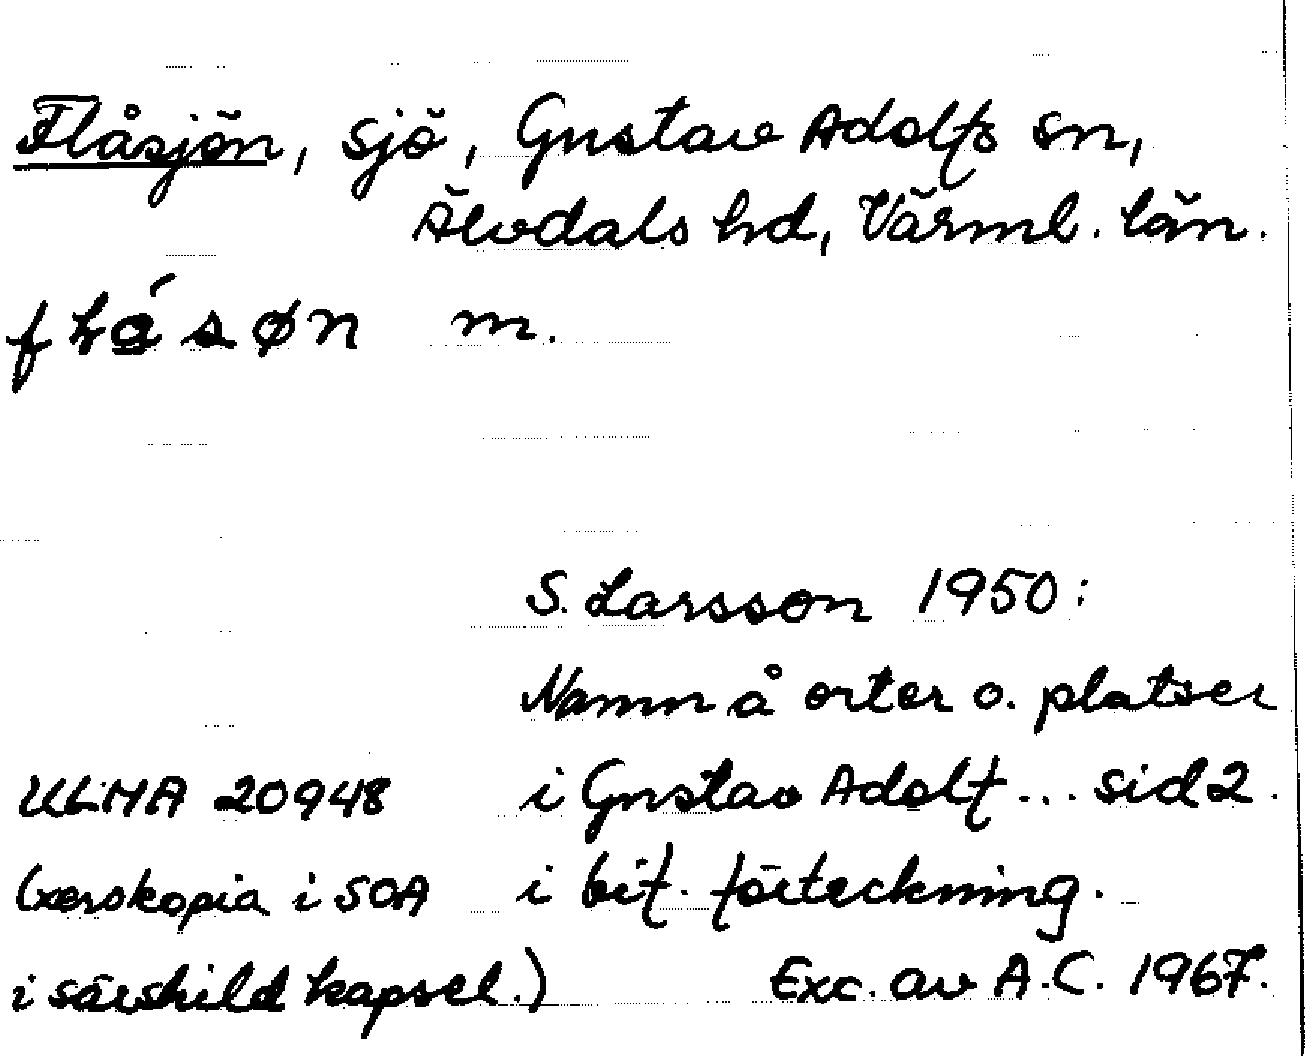 Flåsjön, sjö, Gustav Adolfs sn,
Älvdals hd, Värml. län.
m.
S. Larsson 1950:
Namn å orter o. platser
ULMA 20948 i Gustav Adolf... sid 2.
(xerskopia i SOA i bif. förteckning.
i särskild kapsel.) Exc. av A.C. 1967.